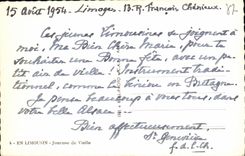 15 Août 1954. Limoges. 13. R. François Chénieux.
Ces jeunes Limousines se joignent à
moi, Ma Bien Chère Marie, pour te
souhaiter une Bonne fête, avec un pe-
tit air de vielle! Instrument tradi-
tionnel, comme le biniou en Bretagne.
Je pense beaucoup à vous tous, dans
votre belle Alsace
Bien affectueusement
Sr Geneviève
f.d.l.ch.
EN LIMOUSIN - Joueuse de Vielle